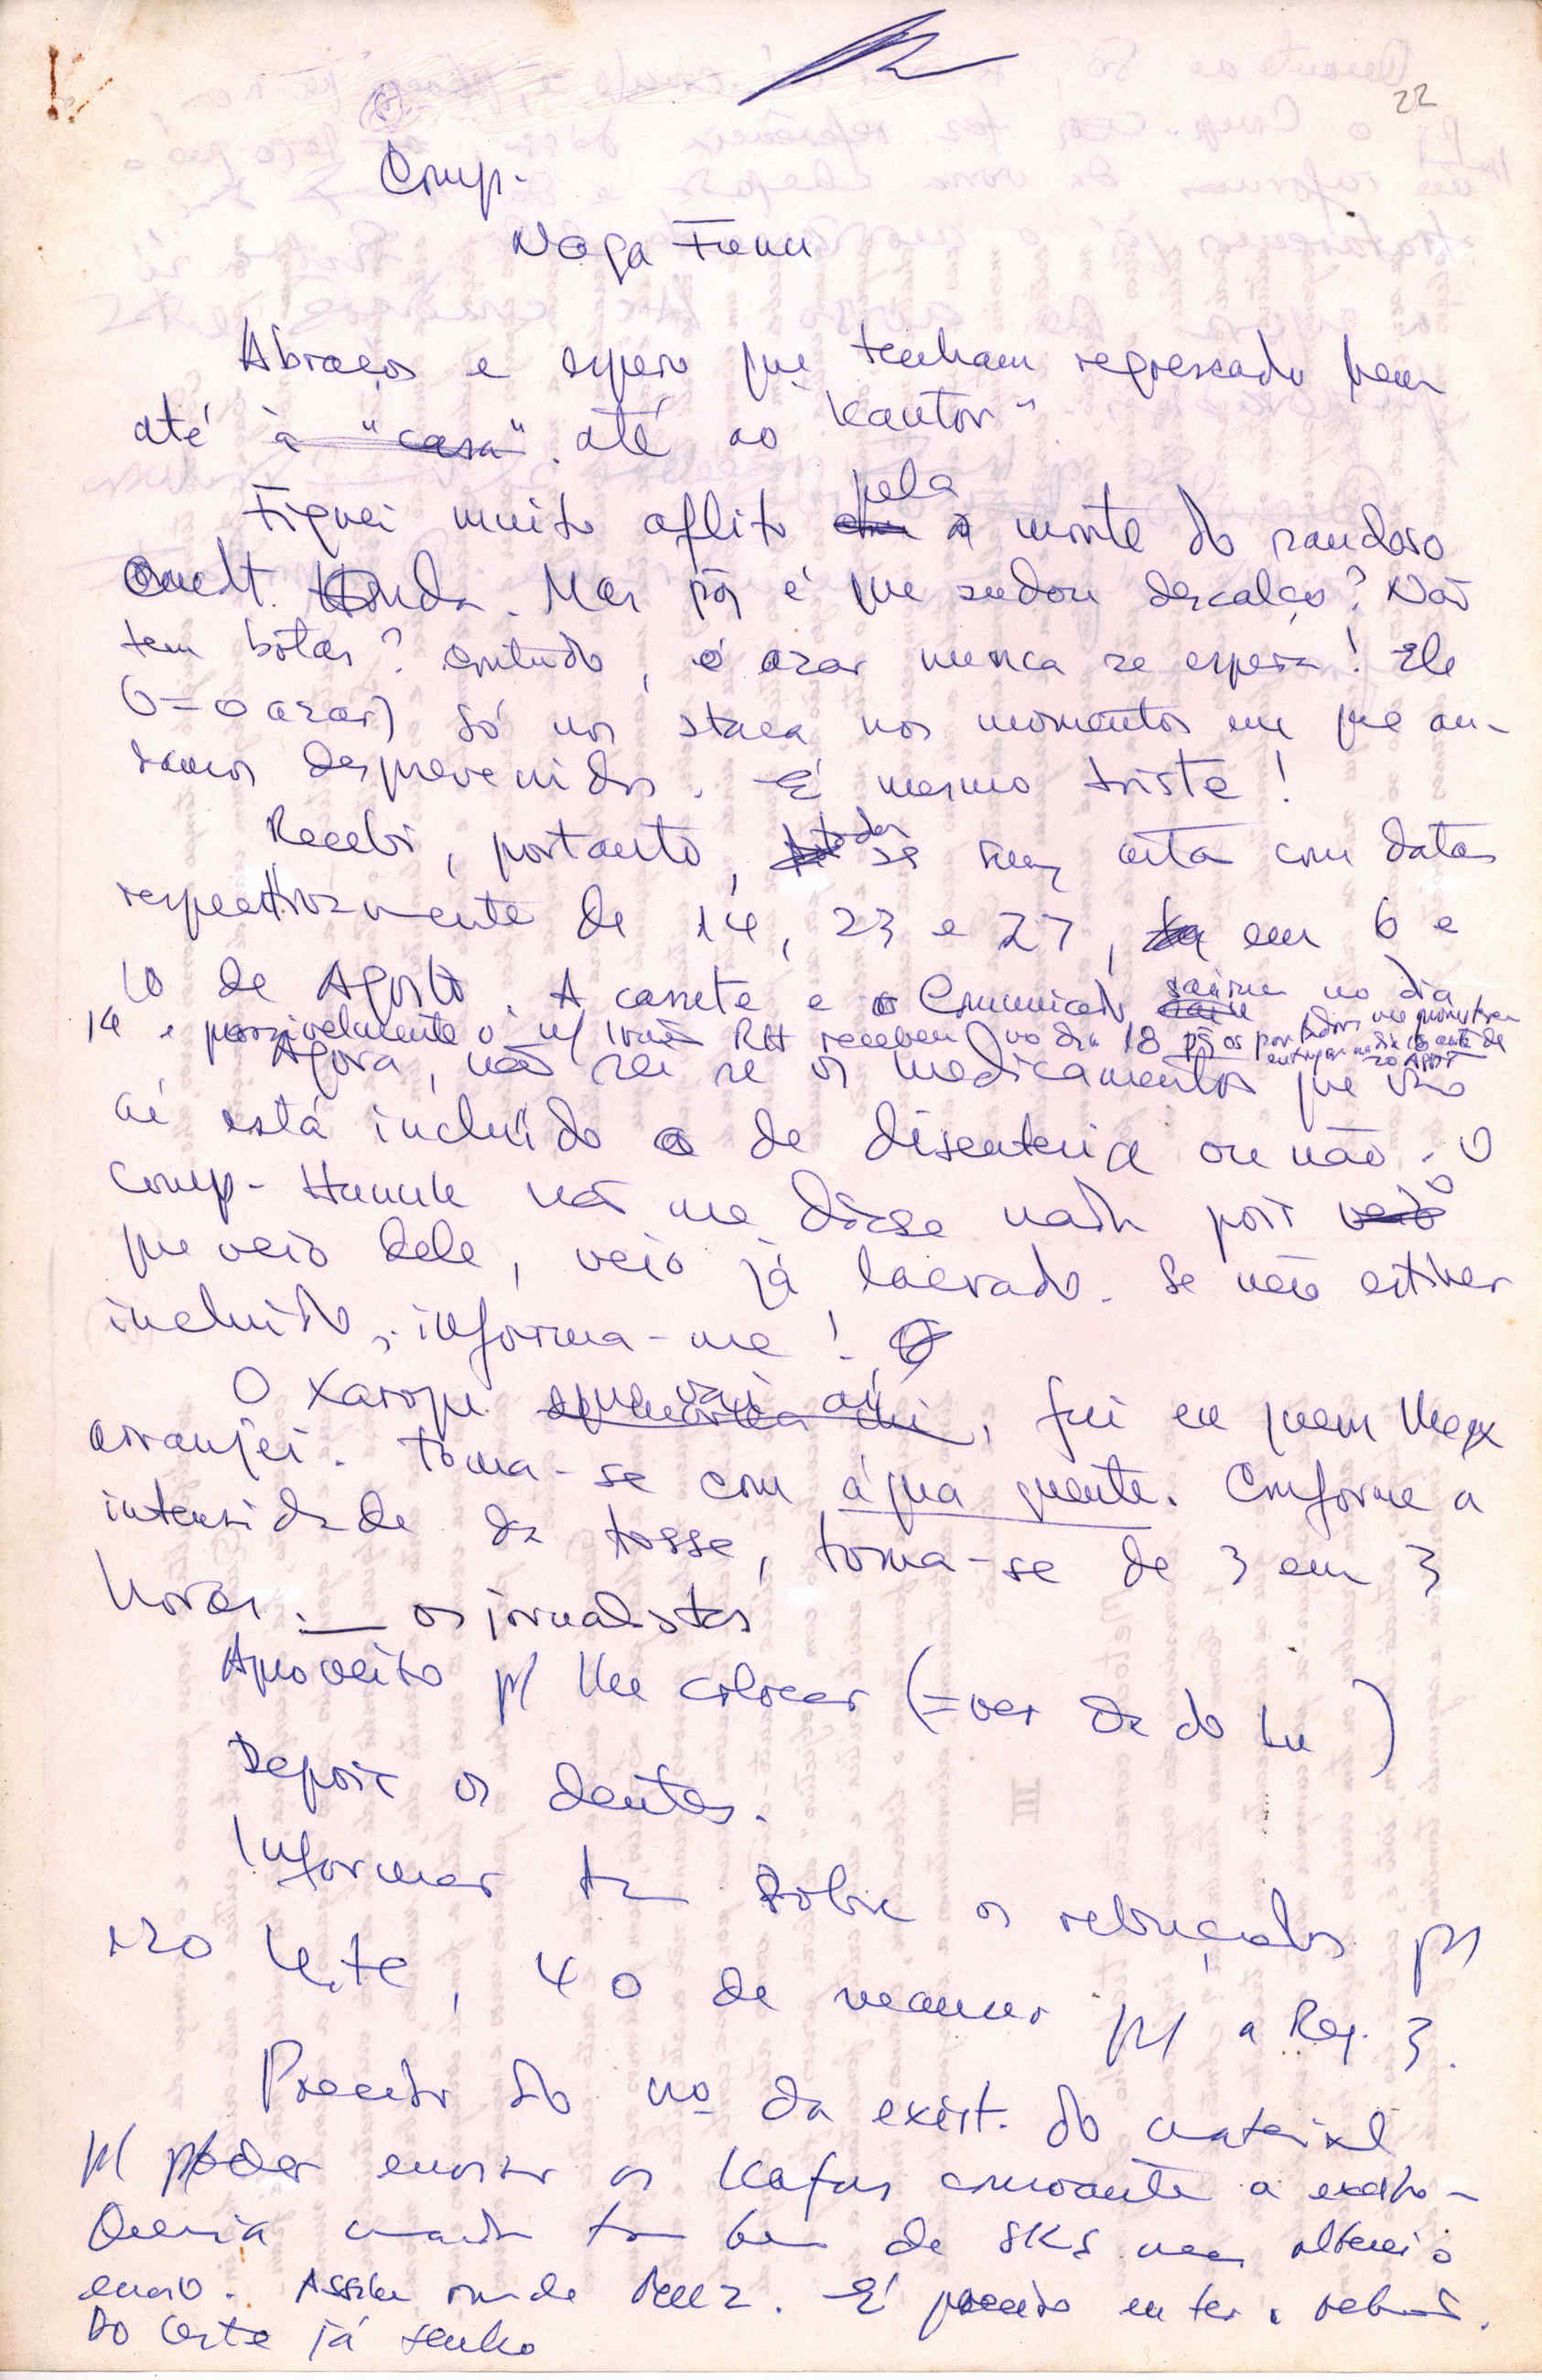 22
Comp.
Noga
Abraços e espero que tenham regressado bem
até à "casa". até ao "kantor".
Fiquei muito aflito pela morte do saudoso
Mas pq é que andou descalço? Não
tem botas? Contudo, o azar nunca se espera! Ele
(= o azar) só nos ataca nos momentos em que an-
damos desprevenidos. É mesmo triste!
Recebi, portanto, todas as suas com datas
respectivamente de 14, 23 e 27, em 6 e
10 de Agosto. A cassete e o Comunicado sairam no dia
14 e possivelmente o n/ irmão RH recebeu no dia 18 pq os portadores me
entregar
Agora, não sei se os medicamentos que vão
aí está incluído o de disenteria ou não. O
Comp. não me disse nada pois o
que veio dele, veio já lacrado. Se não estiver
incluído, informa-me!
O xarope que vai aí, fui eu quem lhe
arranjei. Toma-se com água quente. Conforme a
intensidade da tosse, toma-se de 3 em 3
horas. — os jornalistas
Aproveito p/ lhe colocar (= ver da do Lu)
Depois os dentes.
Informar sobre os rebuçados p/
120 leite, 40 de p/ a Reg. 3.
Preciso do nº da exist. do material
p/ poder enviar os Kafus consoante a
Queria de SKS mas alterei o
envio. Assim É preciso
Do Leste já tenho